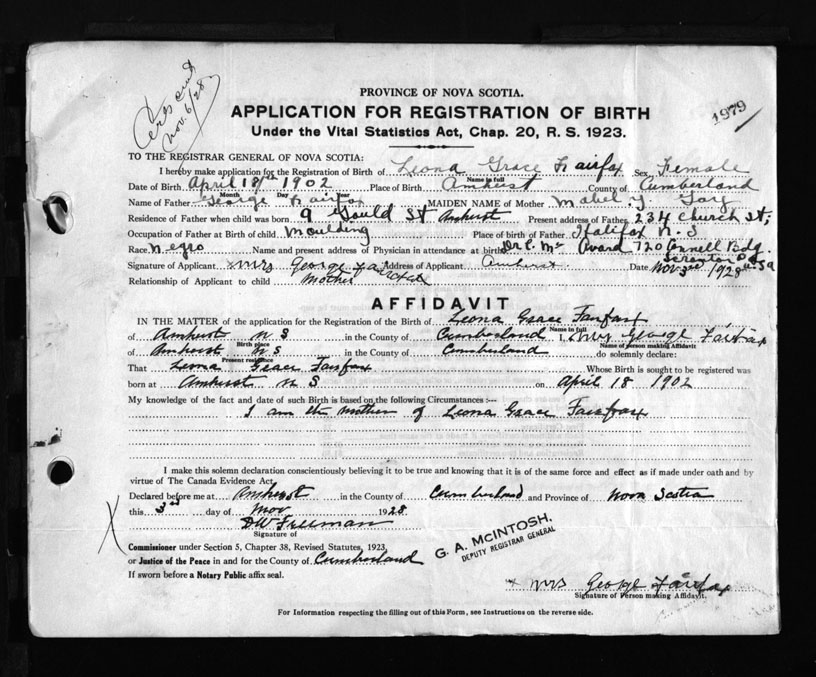 Cert sent
Nov. 6/28
1979
PROVINCE OF NOVA SCOTIA.
APPLICATION FOR REGISTRATION OF BIRTH
Under the Vital Statistics Act, Chap. 20, R. S. 1923.
TO THE REGISTRAR GENERAL OF NOVA SCOTIA:
I hereby make application for the Registration of Birth of Leona Grace Fairfax Sex Female
Name in full
Date of Birth April 18th 1902 Place of Birth Amherst County of Cumberland
Month Day Year
Name of Father George Fairfax MAIDEN NAME of Mother Mabel
Residence of Father when child was born 9 Gould St Amherst Present address of Father 234 Church St;
Occupation of Father at Birth of child Moulding Place of Birth of Father Halifax N. S
Race Negro Name and present address of Physician in attendance at birth Dr. C. Mc 720 Connell Bdg. Scranton
Signature of Applicant Mrs George Fairfax Address of Applicant Amherst Date Nov 3rd 1928
Relationship of Applicant to child Mother
AFFIDAVIT
IN THE MATTER of the application for the Registration of the Birth of Leona Grace Fairfax
Name in full
of Amherst N S in the County of Cumberland I, Mrs George Fairfax
Birth place Name of person making Affidavit
of Amherst N S in the County of Cumberland do solemnly declare:
Present residence
That Leona Grace Fairfax Whose Birth is sought to be registered was
born at Amherst N S on April 18 1902
My knowledge of the fact and date of such Birth is based on the following Circumstances :—
I am the Mother of Leona Grace Fairfax
I make this solemn declaration conscientiously believing it to be true and knowing that it is of the same force and effect as if made under oath and by
virtue of The Canada Evidence Act.
Declared before me at Amherst in the County of Cumberland and Province of Nova Scotia
this 3rd day of Nov 1928.
D W Freeman
Signature of
Commissioner under Section 5, Chapter 38, Revised Statutes, 1923,
or Justice of the Peace in and for the County of Cumberland
If sworn before a Notary Public affix seal.
G. A. McINTOSH,
DEPUTY REGISTRAR GENERAL
x Mrs George Fairfax
Signature of Person making Affidavit.
For Information respecting the filling out of this Form, see Instructions on the reverse side.